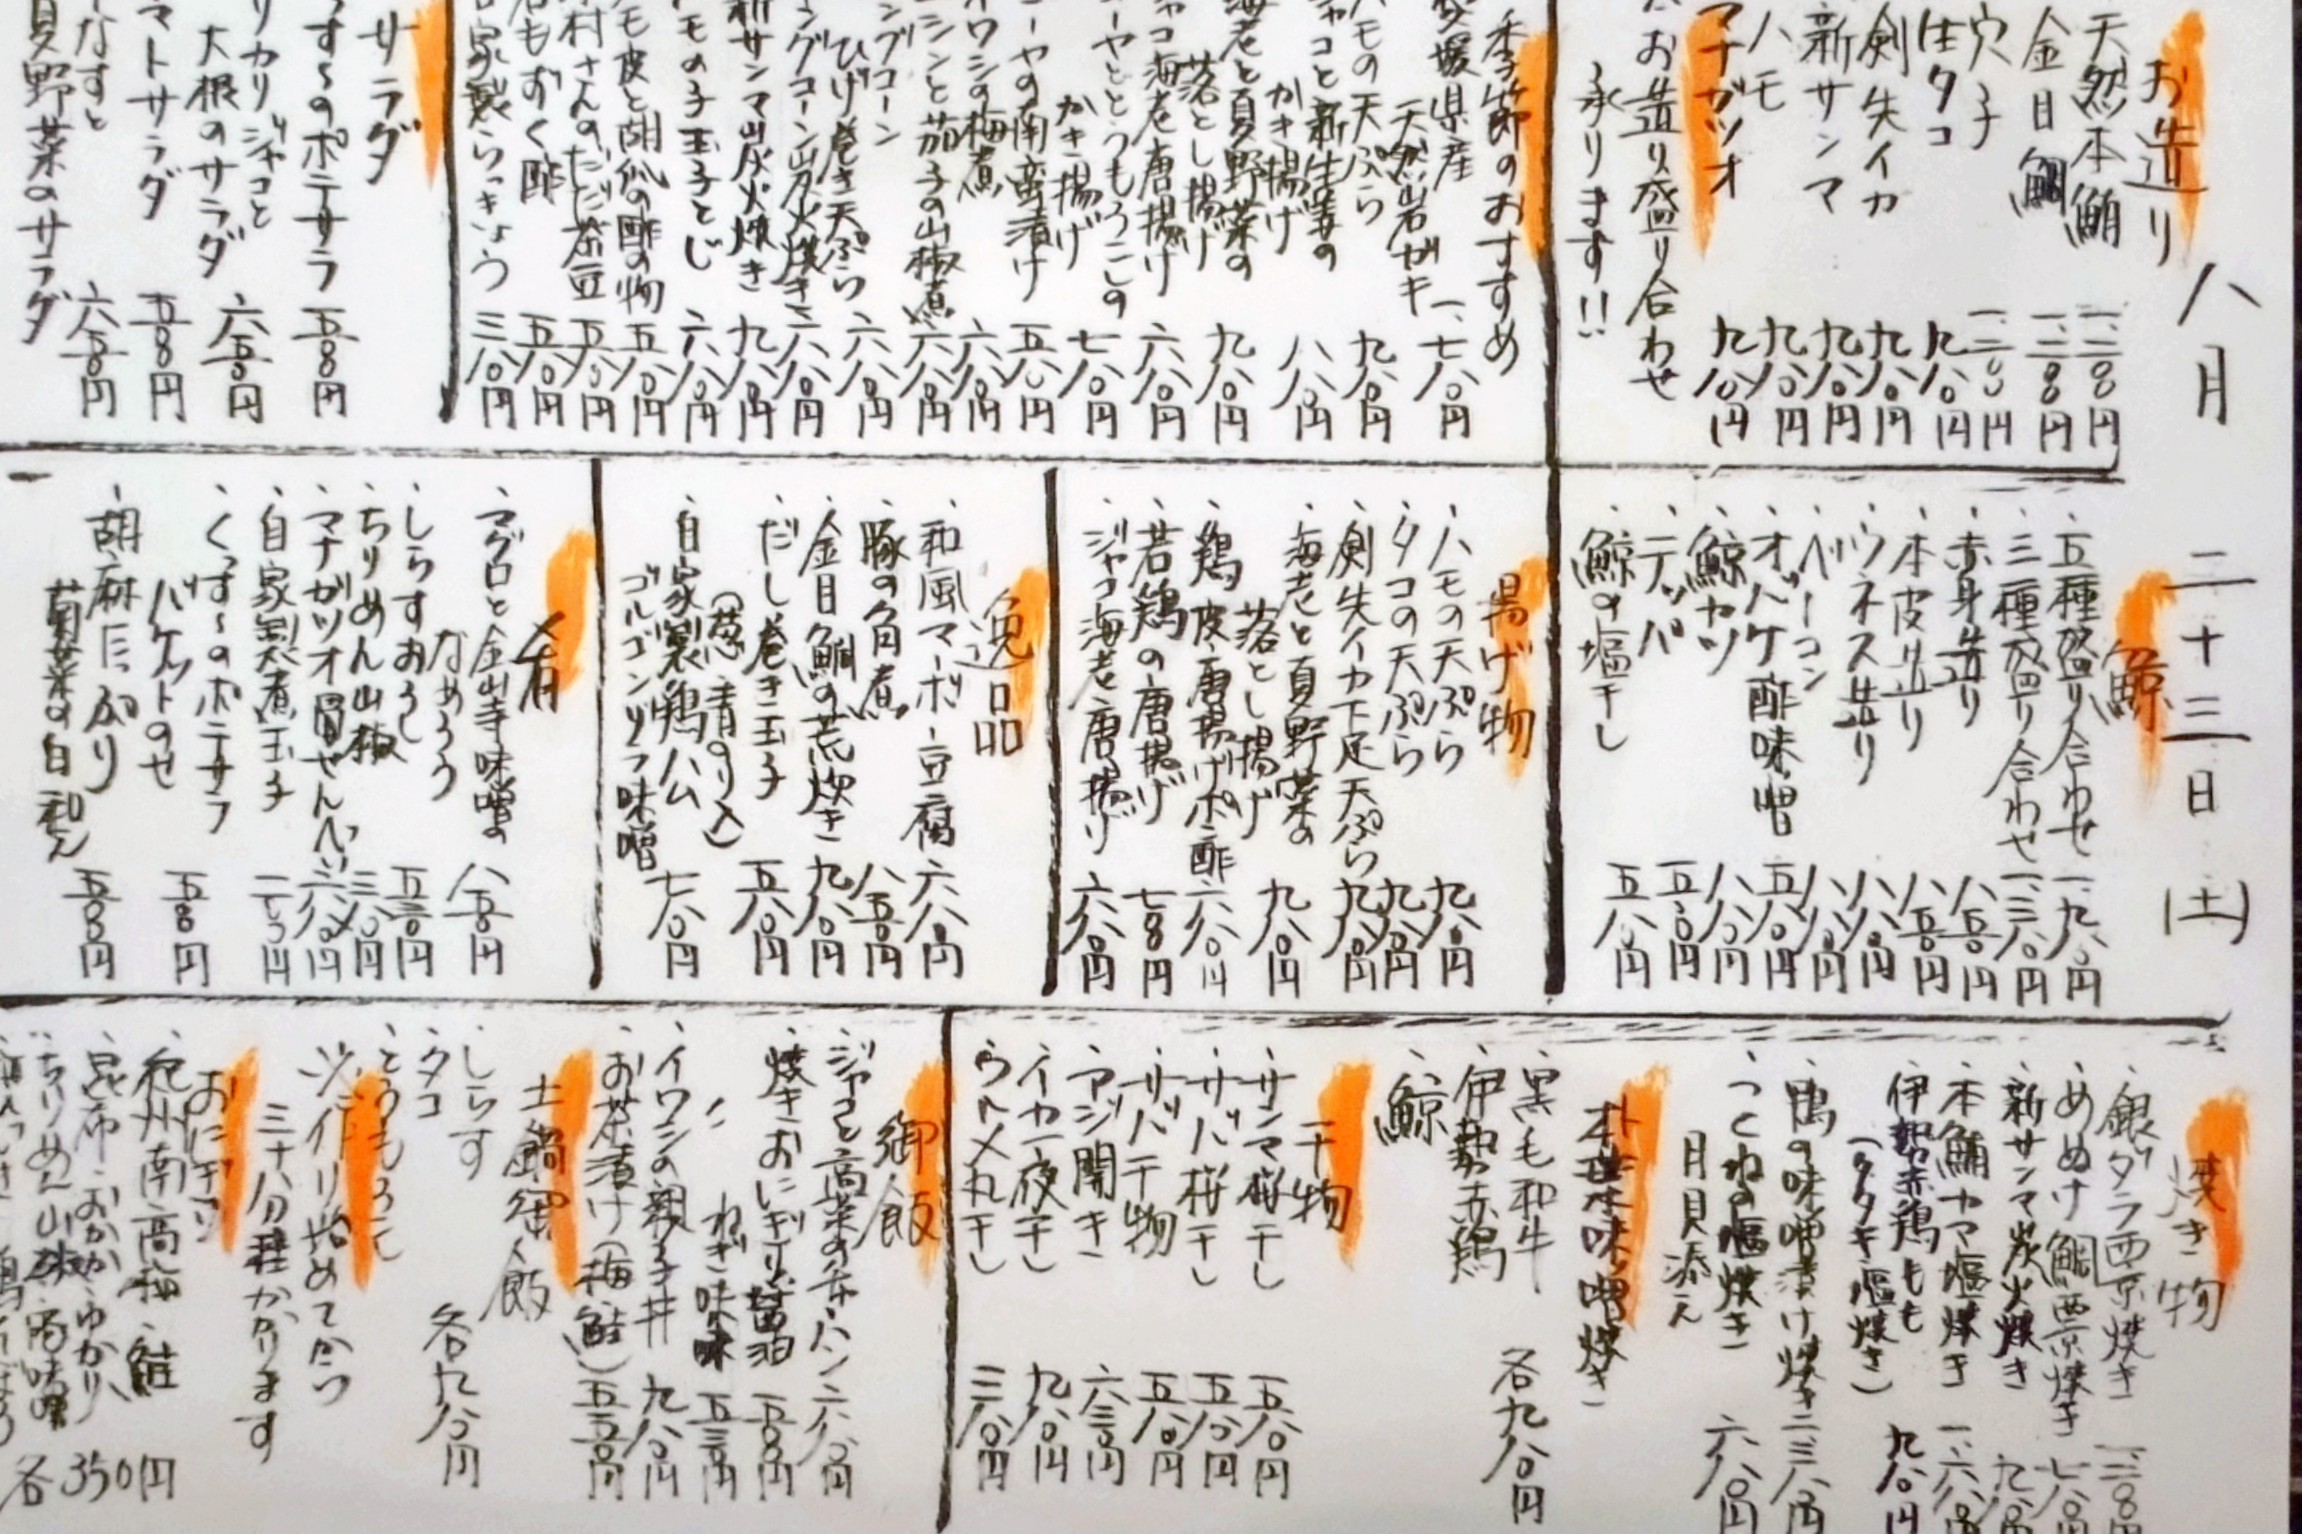 八月二十三日(土)
お造り
天然本鮪 一、二〇〇円
金目鯛 一、二〇〇円
穴子 一、二〇〇円
生タコ 九八〇円
剣先イカ 九八〇円
新サンマ 九八〇円
ハモ 九八〇円
マナガツオ 九八〇円
お造り盛り合わせ
承ります!!
季節のおすすめ
愛媛県産
天然岩ガキ 一、七八〇円
ハモの天ぷら 九八〇円
ジャコと新生姜の
かき揚げ 八八〇円
海老と夏野菜の
落とし揚げ 九八〇円
ジャコ海老唐揚げ 六八〇円
ゴーヤととうもろこしの
かき揚げ 七八〇円
ゴーヤの南蛮漬け 五八〇円
イワシの梅煮 六八〇円
ニシンと茄子の山椒煮 六八〇円
ングコーン
ひげ巻き天ぷら 六八〇円
ングコーン炭火焼き 六八〇円
新サンマ炭火焼き 九八〇円
ハモの子玉子とじ 六八〇円
ハモ皮と胡瓜の酢の物 五八〇円
村さんのだだ茶豆 五八〇円
もずく酢 五八〇円
自家製らっきょう 三八〇円
サラダ
くっす〜のポテサラ 五八〇円
カリカリジャコと
大根のサラダ 六五〇円
トマトサラダ 五八〇円
なすと
夏野菜のサラダ 六五〇円
鯨
五種盛り合わせ 一、九八〇円
三種盛り合わせ 一、三八〇円
赤身造り 八五〇円
本皮造り 八五〇円
ウネス造り 八八〇円
ベーコン 八八〇円
オバケ酢味噌 五八〇円
鯨カツ 八八〇円
テッパ 五五〇円
鯨の塩干し 五八〇円
揚げ物
ハモの天ぷら 九八〇円
タコの天ぷら 九八〇円
剣先イカ下足天ぷら 九八〇円
海老と夏野菜の
落とし揚げ 九八〇円
鶏皮唐揚げポン酢 六八〇円
若鶏の唐揚げ 七八〇円
ジャコ海老唐揚げ 六八〇円
逸品
和風マーボー豆腐 六八〇円
豚の角煮 八五〇円
金目鯛の荒炊き 九八〇円
だし巻き玉子 五八〇円
(葱、青のり入)
自家製鶏ハム
ゴルゴンゾラ味噌 七八〇円
肴
マグロと金山寺味噌の
なめろう 八五〇円
しらすおろし 五三〇円
ちりめん山椒 三八〇円
マナガツオ骨せんべい 三八〇円
自家製煮玉子 二五〇円
くっす〜のポテサラ
バケットのせ 五八〇円
胡麻たっぷり
菊菜の白和え 五五〇円
焼き物
銀ダラ西京焼き
めぬけ鯛西京焼き
新サンマ炭火焼き
本鮪カマ塩焼き 一、六八〇円
伊勢赤鶏もも
(タタキ、塩焼き) 九八〇円
鴨の味噌漬け焼き 二、三八〇円
つくねの塩焼き
月見添え 六八〇円
朴葉味噌焼き
黒毛和牛
伊勢赤鶏
鯨
各九八〇円
干物
サンマ桜干し 五八〇円
サバ桜干し 五八〇円
サバ干物 五八〇円
アジ開き 六三〇円
イカ一夜干し 九八〇円
ウルメ丸干し 三八〇円
御飯
ジャコと高菜の チャーハン 六八〇円
焼きおにぎり 醤油 五〇〇円
〃 ねぎ味味 五三〇円
イワシの親子丼 九八〇円
お茶漬け(梅、鮭) 五五〇円
土鍋御飯
しらす
タコ
とうもろこし
各九八〇円
※作り始めてから
三十八分程かかります
おにぎり
紀州南高梅、鮭
昆布、おかか、ゆかり
ちりめん山椒
各350円